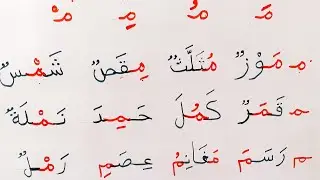 مَ مُ مِ مْ
م مَوْزٌ مُثَلَّثٌ مِقَصٌ شَمْسٌ
م قَمَرٌ كَمُلَ حَمِدَ نَمْلَةٌ
م رَسَمَ مَغَانِمُ عِصَمِ رَمْلٌ